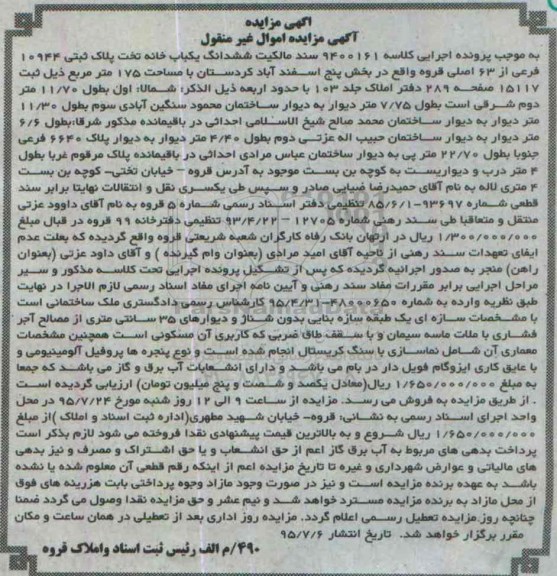 آگهی مزایده
آگهی مزایده اموال غیر منقول
به موجب پرونده اجرایی کلاسه ۹۴۰۰۱۶۱ سند مالکیت ششدانگ یکباب خانه تخت پلاک ثبتی ۱۰۹۴۴
فرعی از ۶۳ اصلی قروه واقع در بخش پنج اسفند آباد کردستان با مساحت ۱۷۵ متر مربع ذیل ثبت
۱۵۱۱۷ صفحه ۲۸۹ دفتر املاک جلد ۱۰۳ با حدود اربعه ذیل الذکر: شمالا: اول بطول ۱۱/۷۰ متر
دوم شرقی است بطول ۷/۷۵ متر دیوار به دیوار ساختمان محمود سنگین آبادی سوم بطول ۱۱/۳۰
متر دیوار به دیوار ساختمان محمد صالح شیخ الاسلامی احداثی در باقیمانده مذکور شرقا:بطول ۶/۶
متر دیوار به دیوار ساختمان حبیب اله عزتی دوم بطول ۴/۴۰ متر دیوار به دیوار پلاک ۶۶۴۰ فرعی
جنوبا بطول ۲۲/۷۰ متر پی به دیوار ساختمان عباس مرادی احداثی در باقیمانده پلاک مرقوم غربا بطول
۴ متر درب و دیواریست به کوچه بن بست موجود به آدرس قروه – خیابان تختی- کوچه بن بست
۴ متری لاله به نام آقای حمیدرضا ضیایی صادر و سپس طی یکسری نقل و انتقالات نهایتا برابر سند
قطعی شماره ۹۳۶۹۷-۸۵/۶/۱ تنظیمی دفتر اسناد رسمی شماره ۵ قروه به نام آقای داوود عزتی
منتقل و متعاقبا طی سند رهنی شماره ۱۲۷۰۵ – ۹۳/۴/۲۲ تنظیمی دفترخانه ۹۹ قروه در قبال مبلغ
۱/۳۰۰/۰۰۰/۰۰۰ ریال در ارتهان بانک رفاه کارگران شعبه شریعتی قروه واقع گردیده که بعلت عدم
ایفای تعهدات سند رهنی از ناحیه آقای امید مرادی (بعنوان وام گیرنده ) و آقای داود عزتی (بعنوان
راهن) منجر به صدور اجرائیه گردیده که پس از تشکیل پرونده اجرایی تحت کلاسه مذکور و سیر
مراحل اجرایی برابر مقررات مفاد سند رهنی و آیین نامه اجرای مفاد اسناد رسمی لازم الاجرا در نهایت
طبق نظریه وارده به شماره ۴۸۰۰۰۶۵۰-۹۵/۴/۳۱ کارشناس رسمی دادگستری ملک ساختمانی است
با مشخصات سازه ای یک طبقه سازه بنایی بدون شناژ و دیوارهای ۳۵ سانتی متری از مصالح آجر
فشاری با ملات ماسه سیمان و با سقف طاق ضربی که کاربری آن مسکونی است همچنین مشخصات
معماری آن شامل نماسازی با سنگ کریستال انجام شده است و نوع پنجره ها پروفیل آلومینیومی و
با عایق کاری ایزوگام فویل دار در بام می باشد. و دارای انشعابات آب برق و گاز می باشد که جمعا
به مبلغ ۱/۶۵۰/۰۰۰/۰۰۰ ریال(معادل یکصد و شصت و پنج میلیون تومان) ارزیابی گردیده است
. از طریق مزایده به فروش می رسد. مزایده از ساعت ۹ الی ۱۲ روز شنبه مورخ ۹۵/۷/۲۴ در محل
واحد اجرای اسناد رسمی به نشانی: قروه- خیابان شهید مطهری(اداره ثبت اسناد و املاک )از مبلغ
۱/۶۵۰/۰۰۰/۰۰۰ ریال شروع و به بالاترین قیمت پیشنهادی نقدا فروخته می شود لازم بذکر است
پرداخت بدهی های مربوط به آب برق گاز اعم از حق انشعاب و یا حق اشتراک و مصرف و نیز بدهی
های مالیاتی و عوارض شهرداری و غیره تا تاریخ مزایده اعم از اینکه رقم قطعی آن معلوم شده یا نشده
باشد به عهده برنده مزایده است و نیز در صورت وجود مازاد وجوه پرداختی بابت هزینه های فوق
از محل مازاد به برنده مزایده مسترد خواهد شد و نیم عشر و حق مزایده نقدا وصول می گردد ضمنا
چنانچه روز مزایده تعطیل رسمی اعلام گردد. مزایده روز اداری بعد از تعطیلی در همان ساعت و مکان
مقرر برگزار خواهد شد. تاریخ انتشار ۹۵/۷/۶
۴۹۰/م الف رئیس ثبت اسناد واملاک قروه